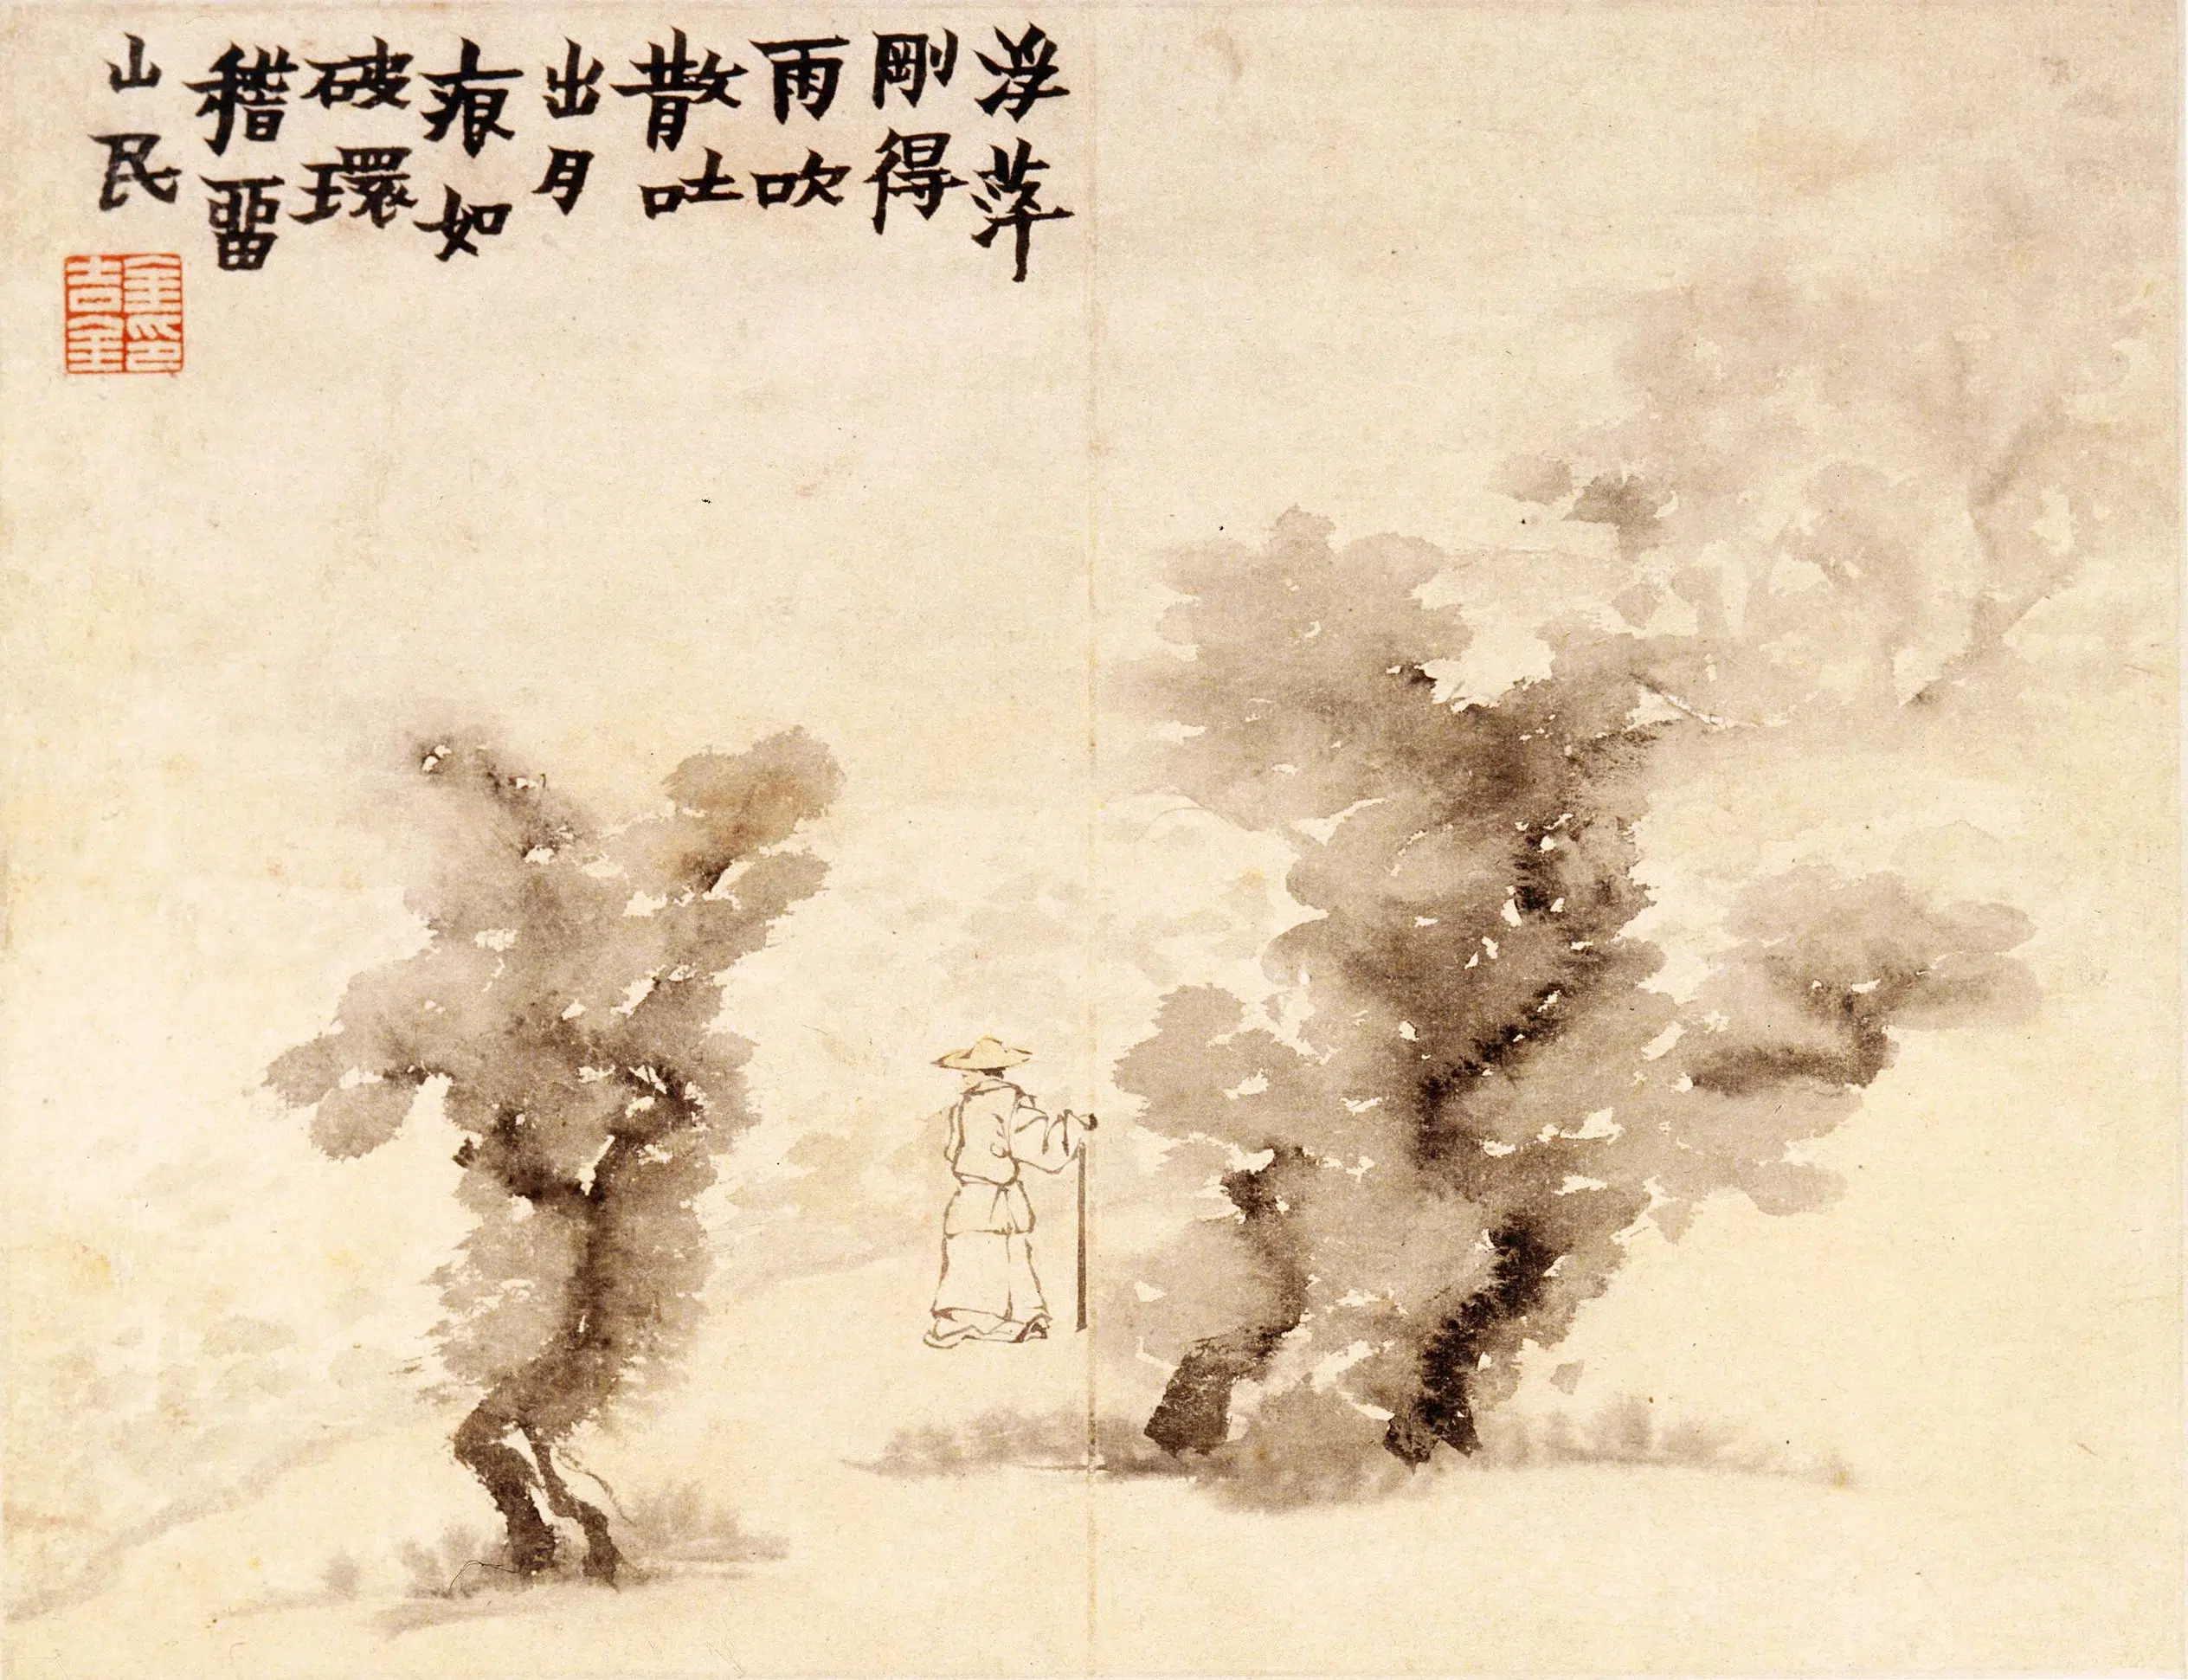 浮萍
剛得
雨吹
散吐
出月
痕如
破環
稽畱
山民
金印
吉金